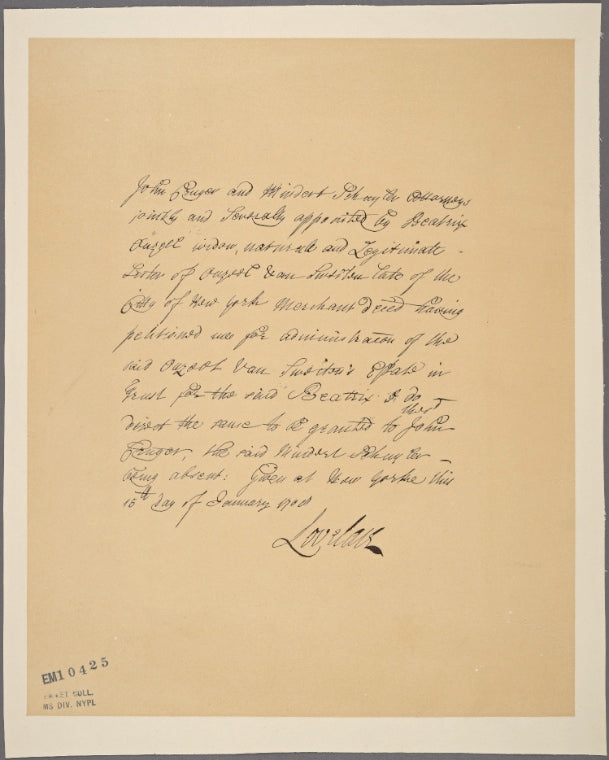 John Cruger and Mindert Schuyler Attorneys
jointly and Severally appointed by Beatrix
Ouzeel widow, naturale and Legitimate
Sister of Ouzeel Van Swieten late of the
Citty of New York Merchant deced having
petitioned me for administration of the
said Ouzeel Van Swieten's Estate in
trust for the said Beatrix I do
direct the same to be granted to the sd John
Cruger, the said Mindert Schuyler
being absent: Given at New Yorke this
15th day of January
Lovelace
EM10425
EMMET COLL.
MS DIV. NYPL